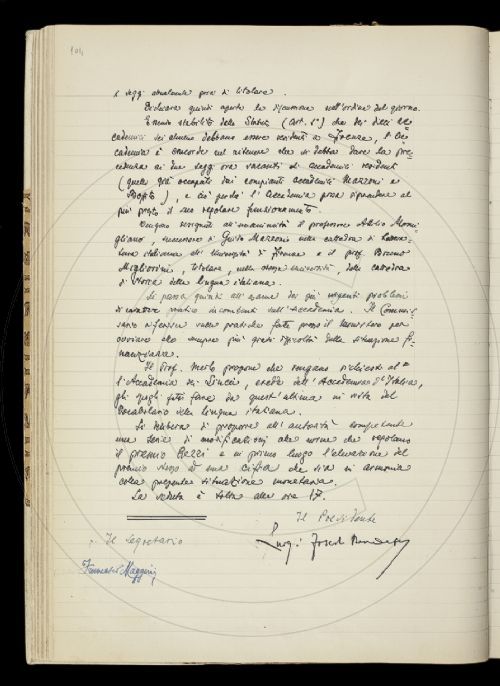 104
i seggi attualmente privi di titolare.
Dichiara quindi aperta la discussione sull'ordine del giorno.
Essendo stabilito dallo Statuto (Art. 1°) che dei dieci ac-
cademici sei almeno debbano essere residenti a Firenze, l'Ac-
cademia è concorde nel ritenere che si debba dare la pre-
cedenza ai due seggi ora vacanti di accademici residenti
(quelli già occupati dai compianti accademici Mazzoni e
), e ciò perché l'Accademia possa riprendere al
più presto il suo regolare funzionamento.
Vengono designati all'unanimità il professore Attilio Momi-
gliano, successore di Guido Mazzoni nella cattedra di Lettera-
tura italiana dell'Università di Firenze e il prof. Bruno
Migliorini, titolare, nella stessa università, della cattedra
di storia della lingua italiana.
Si passa quindi all'esame dei più urgenti problemi
di carattere pratico incombenti sull'Accademia. Il Commis-
sario riferisce sulle pratiche fatte presso il Ministero per
ovviare alle sempre più gravi difficoltà della situazione fi-
nanziaria.
Il Prof. Merlo propone che vengano richiesti al-
l'Accademia dei Lincei, erede dell'Accademia d'Italia,
gli spogli fatti fare da quest'ultima in vista del
Vocabolario della lingua italiana.
Si delibera di proporre all'autorità competente
una serie di modificazioni alle norme che regolano
il premio e in primo luogo l'elevazione del
premio stesso ad una cifra che sia in armonia
colla presente situazione monetaria.
La seduta è tolta alle ore 17.
Il Presidente
Il Segretario
Luigi
Maggini